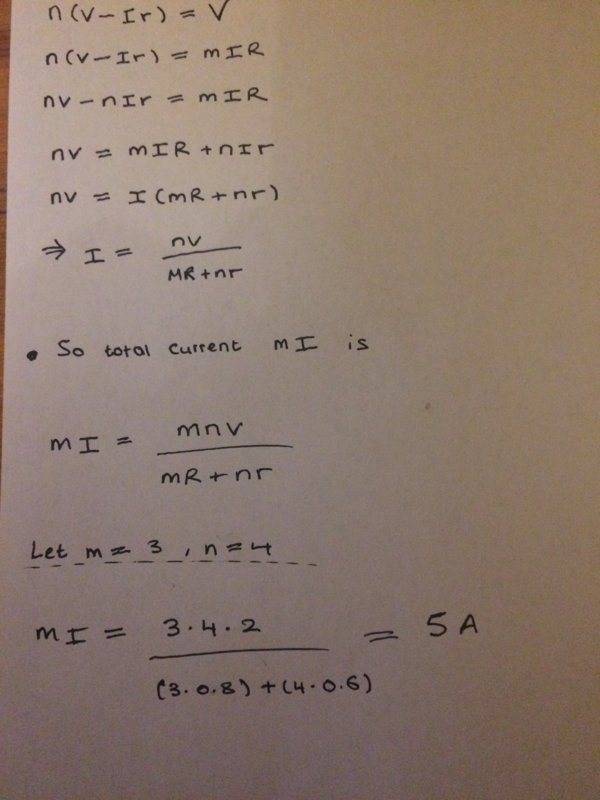 n(v-Ir) = V
n(v-Ir) = mIR
nv - nIr = mIR
nv = mIR + nIr
nv = I(mR + nr)
⇒ I = nv / MR + nr
• So total current mI is
mI = mnv / mR + nr
Let m = 3, n = 4
mI = 3·4·2 / (3·0.8) + (4·0.6) = 5A